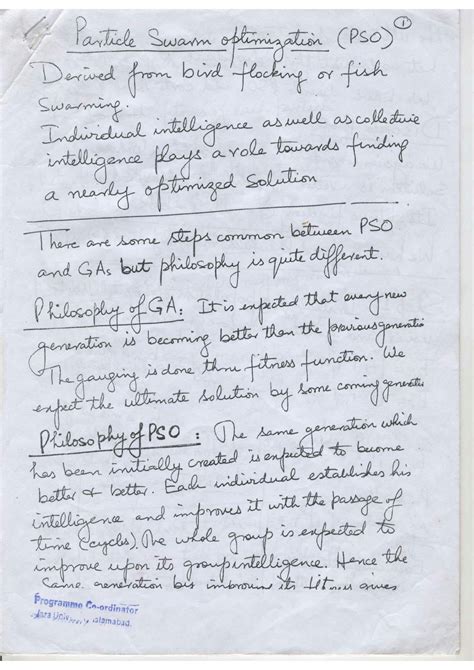 1
Particle Swarm optimization (PSO)
Derived from bird flocking or fish
swarming.
Individual intelligence as well as collective
intelligence plays a role towards finding
a nearly optimized solution
There are some steps common between PSO
and GAs but philosophy is quite different.
Philosophy of GA: It is expected that every new
generation is becoming better than the previous generatio
The gauging is done thru fitness function. We
expect the ultimate solution by some coming generation
Philosophy of PSO : The same generation which
has been initially created is expected to become
better & better. Each individual establishes his
intelligence and improves it with the passage of
time (cycles). The whole group is expected to
improve upon its group intelligence. Hence the
same generation by improving its fitness gives
Programme Co-ordinator
Islamabad.